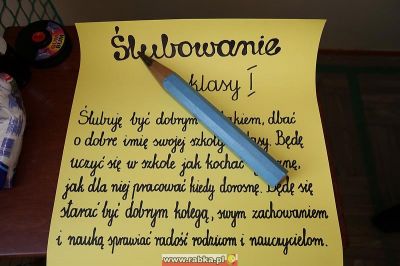 Ślubowanie
klasy I
Ślubuję być dobrym dbać
o dobre imię swojej szkoły Będę
uczyć się w szkole jak kochać
jak dla niej pracować kiedy dorosnę. Będę się
starać być dobrym kolegą, swym zachowaniem
i nauką sprawiać radość rodzicom i nauczycielom.
www.rabka.pl